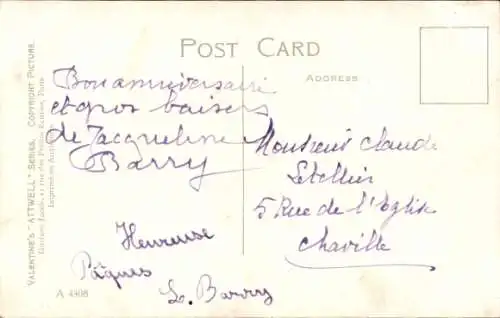 POST CARD
ADDRESS
Bon anniversaire
et gros baisers
de Jacqueline
Barry
Heureuse
Pâques
L. Barry
Monsieur Claude
5 Rue de l'Eglise
Chaville
A 4408
VALENTINE'S "ATTWELL" SERIES. COPYRIGHT PICTURE.